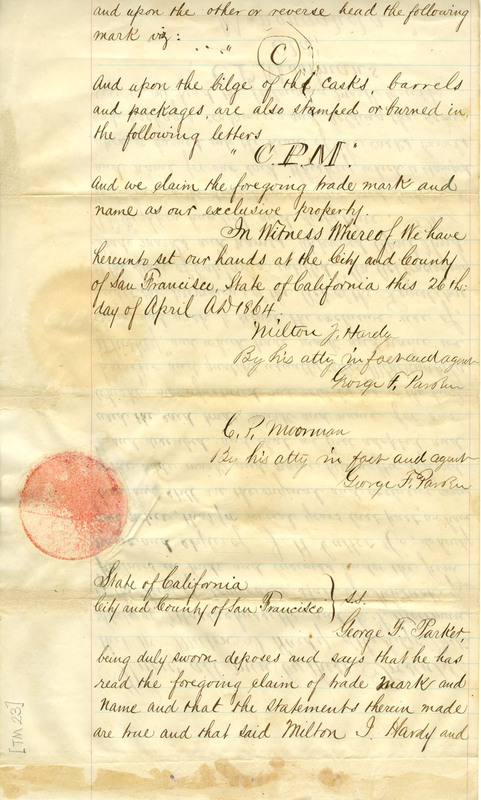 and upon the other or reverse head the following
mark viz:
" " " C "
And upon the bilge of the casks, barrels
and packages, are also stamped or burned in
the following letters
"C.P.M."
And we claim the foregoing trade mark and
name as our exclusive property.
In Witness Whereof, We have
hereunto set our hands at the City and County
of San Francisco, State of California this 26th
day of April AD 1864.
Milton J. Hardy
By his atty in fact and agent
George F. Parker
C. P. Moorman
By his atty in fact and agent
George F. Parker
State of California
City and County of San Francisco } s.s.
George F Parker,
being duly sworn deposes and says that he has
read the foregoing claim of trade mark and
name and that the statements therein made
are true and that said Milton J. Hardy and
[TM 23]